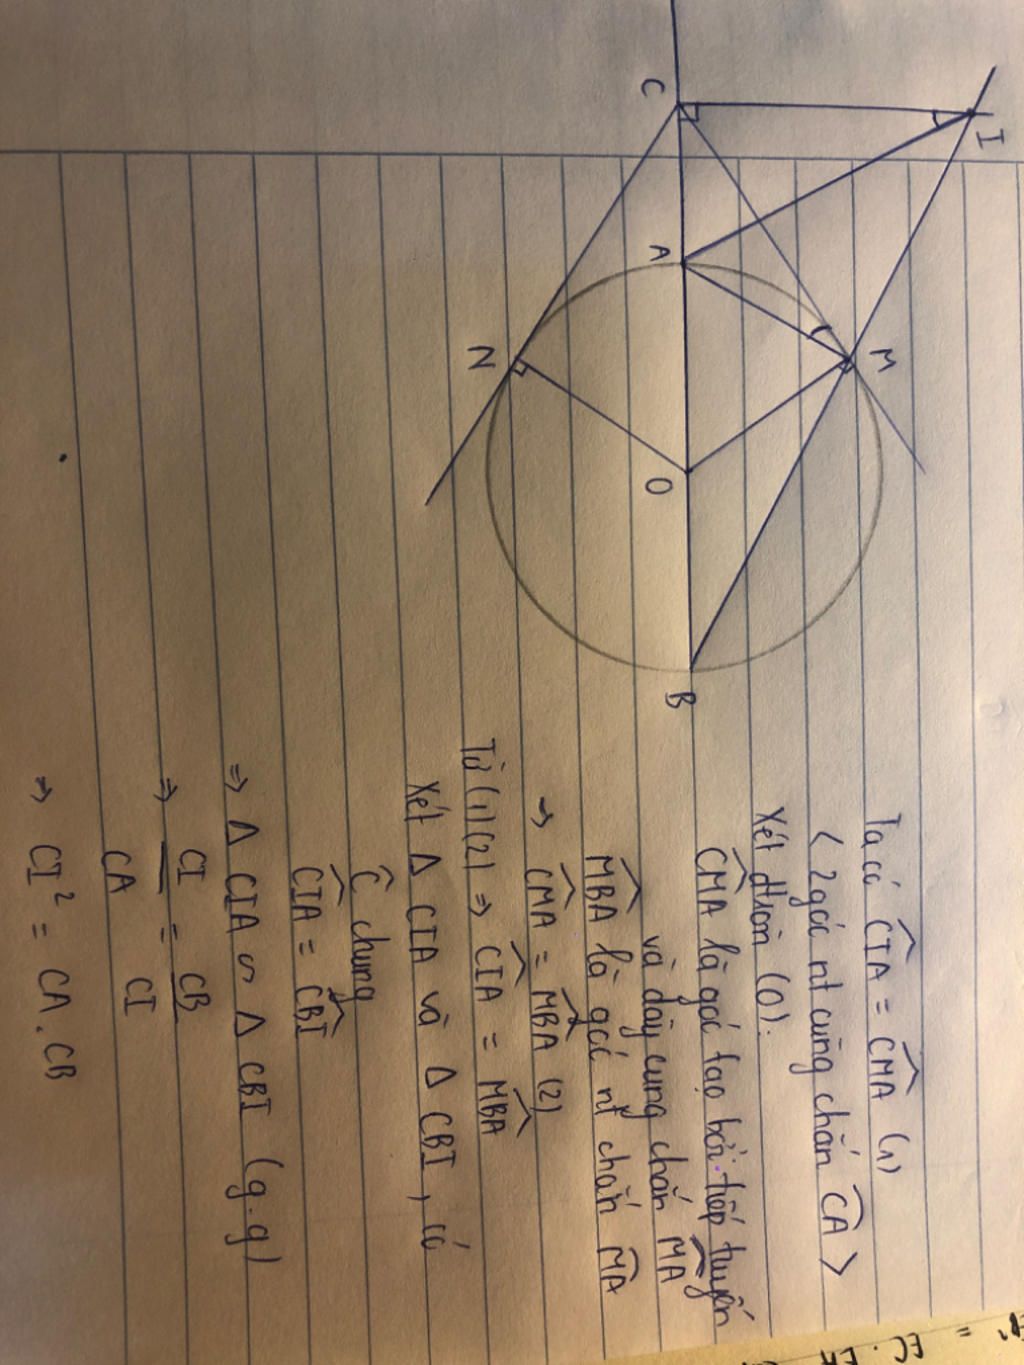 C
I
A
M
N
O
B
Ta có CIA = CMA (1)
< 2 góc nt cùng chắn CA >
Xét đtròn (O):
CMA là góc tạo bởi tiếp tuyến
và dây cung chắn MA
MBA là góc nt chắn MA
→ CMA = MBA (2)
Từ (1)(2) => CIA = MBA
Xét Δ CIA và Δ CBI, có
C chung
CIA = CBI
=> Δ CIA ∽ Δ CBI (g.g)
=> CI/CA = CB/CI
→ CI² = CA.CB
= EC.